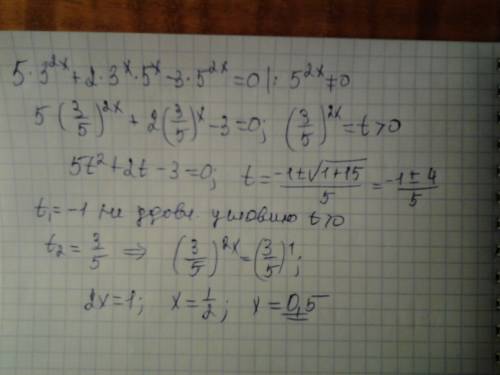 5·3^{2x}+2·3^x·5^x-3·5^{2x}=0|: 5^{2x}≠0
5(3/5)^{2x}+2(3/5)^x-3=0; (3/5)^{2x}=t>0
5t²+2t-3=0; t=(-1±√(1+15))/5=(-1±4)/5
t₁=-1 не удовл. условию t>0
t₂=3/5 ⇒ (3/5)^{2x}=(3/5)^1;
2x=1; x=1/2; x=0,5